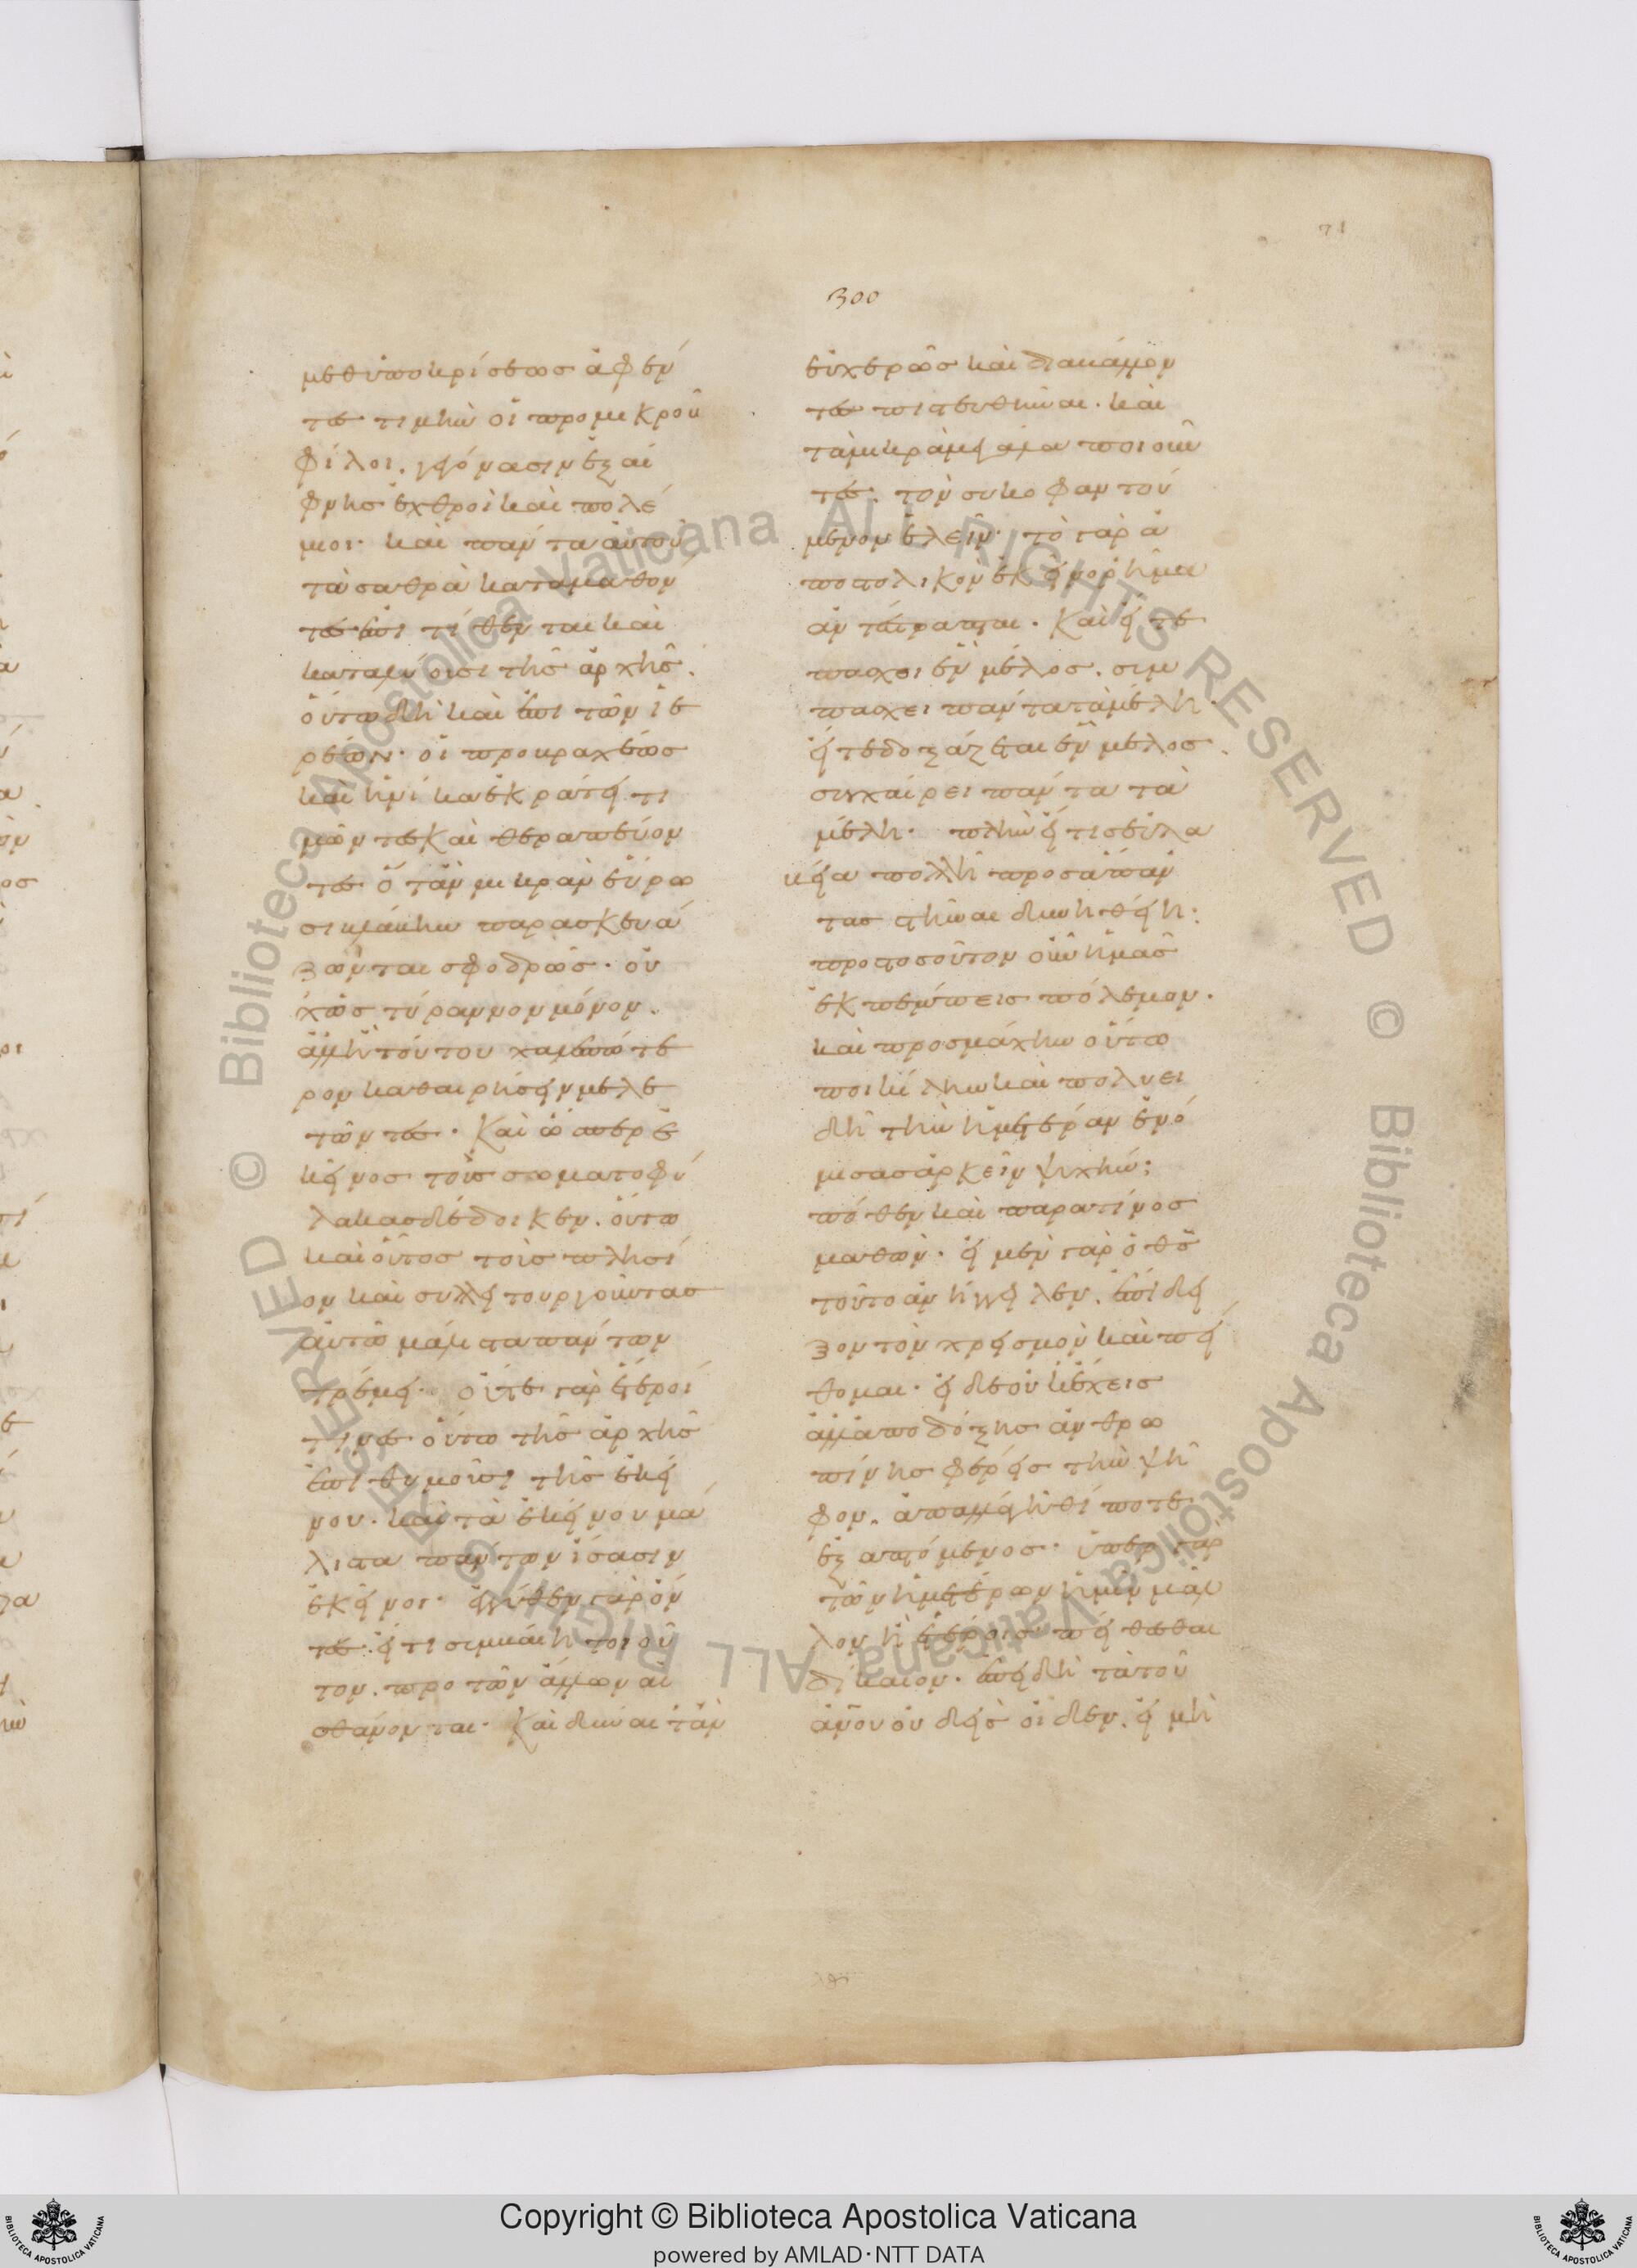 71
300
μεθ ὑποκρίσεως ἀφέν
τες τιμὴν οἱ προμικροῦ
φίλοι. γεγόνασιν ἐξαί
φνης ἐχθροὶ καὶ πολέ
μιοι· καὶ πάντα αὐτοῦ
τὰ σαθρὰ καταμαθόν
τες ἐπιτίθενται καὶ
καταλύουσι τῆς ἀρχῆς.
οὕτω δὴ καὶ ἐπὶ τῶν ἱε
ρέων· οἱ προβραχέως
καὶ ἡνίκα ἐκράτει τι
μῶντες καὶ θεραπεύον
τες ὅταν μικρὰν εὕρω
σι λαβὴν παρασκευά
ζωνται σφοδρῶς· οὐ
χ ὡς τύραννον μόνον.
ἀλλ εἴ τι τούτου χαλεπώτε
ρον καθαιρήσειν μελε
τῶντες· Καὶ ὥσπερ ἐ
κεῖνος τοὺς σωματοφύ
λακας δέδοικεν. οὕτω
καὶ οὗτος τοὺς πλησί
ον καὶ συλλειτουργοῦντας
αὐτῶ μάλιστα πάντων
τρέμει· οὔτε γὰρ ἕτεροί
τινες οὕτω τῆς ἀρχῆς
ἐπιθυμοῦσι τῆς ἐκεί
νου· καὶ τὰ ἐκείνου μά
λιστα πάντων ἴσασιν
ἐκεῖνοι· ἐγγύθεν γὰρ ὄν
τες εἴ τι συμβαίη τοιοῦ
τον. πρὸ τῶν ἄλλων αἰ
σθάνονται· Καὶ δύναιντ ἂν
εὐχερῶς καὶ διαβάλλον
τες πιστευθῆναι· καὶ
τὰ μικρὰ μεγάλα ποιοῦν
τες. τὸν συκοφαντού
μενον ἑλεῖν· τὸ γὰρ ἀ
ποστολικὸν ἐκεῖνο ῥῆμα
ἀντέστραπται· Καὶ εἴτε
πάσχει ἓν μέλος. συμ
πάσχει πάντα τὰ μέλη
εἴτε δοξάζεται ἓν μέλος.
συγχαίρει πάντα τὰ
μέλη· πλὴν εἴ τις εὐλα
βεία πολλῆ πρὸς ἅπαν
τας στῆναι δυνηθείη·
πρὸς τοσοῦτον οὖν ἡμᾶς
ἐκπέμπεις πόλεμον·
καὶ πρὸς μάχην οὕτω
ποικίλην καὶ πολυει
δῆ τὴν ἡμετέραν ἐνό
μισας ἀρκεῖν ψυχήν;
πόθεν καὶ παρὰ τίνος
μαθών· εἰ μὲν γὰρ ὁ θς
τοῦτο ἀνήγγειλεν. ἐπίδει
ξον τὸν χρησμὸν καὶ πεί
θομαι· εἰ δὲ οὐκ ἔχεις
ἀλλ ἀπὸ δόξης ἀνθρω
πίνης φέρεις τὴν ψῆ
φον. ἀπαλλάγηθί ποτε
ἐξαπατώμενος· ὑπὲρ γὰρ
τῶν ἡμετέρων ἡμῖν μᾶλ
λον ἢ ἑτέροις πείθεσθαι
δίκαιον· ἐπειδὴ τὰ τοῦ
ἀνου οὐδεὶς οἶδεν. εἰ μὴ